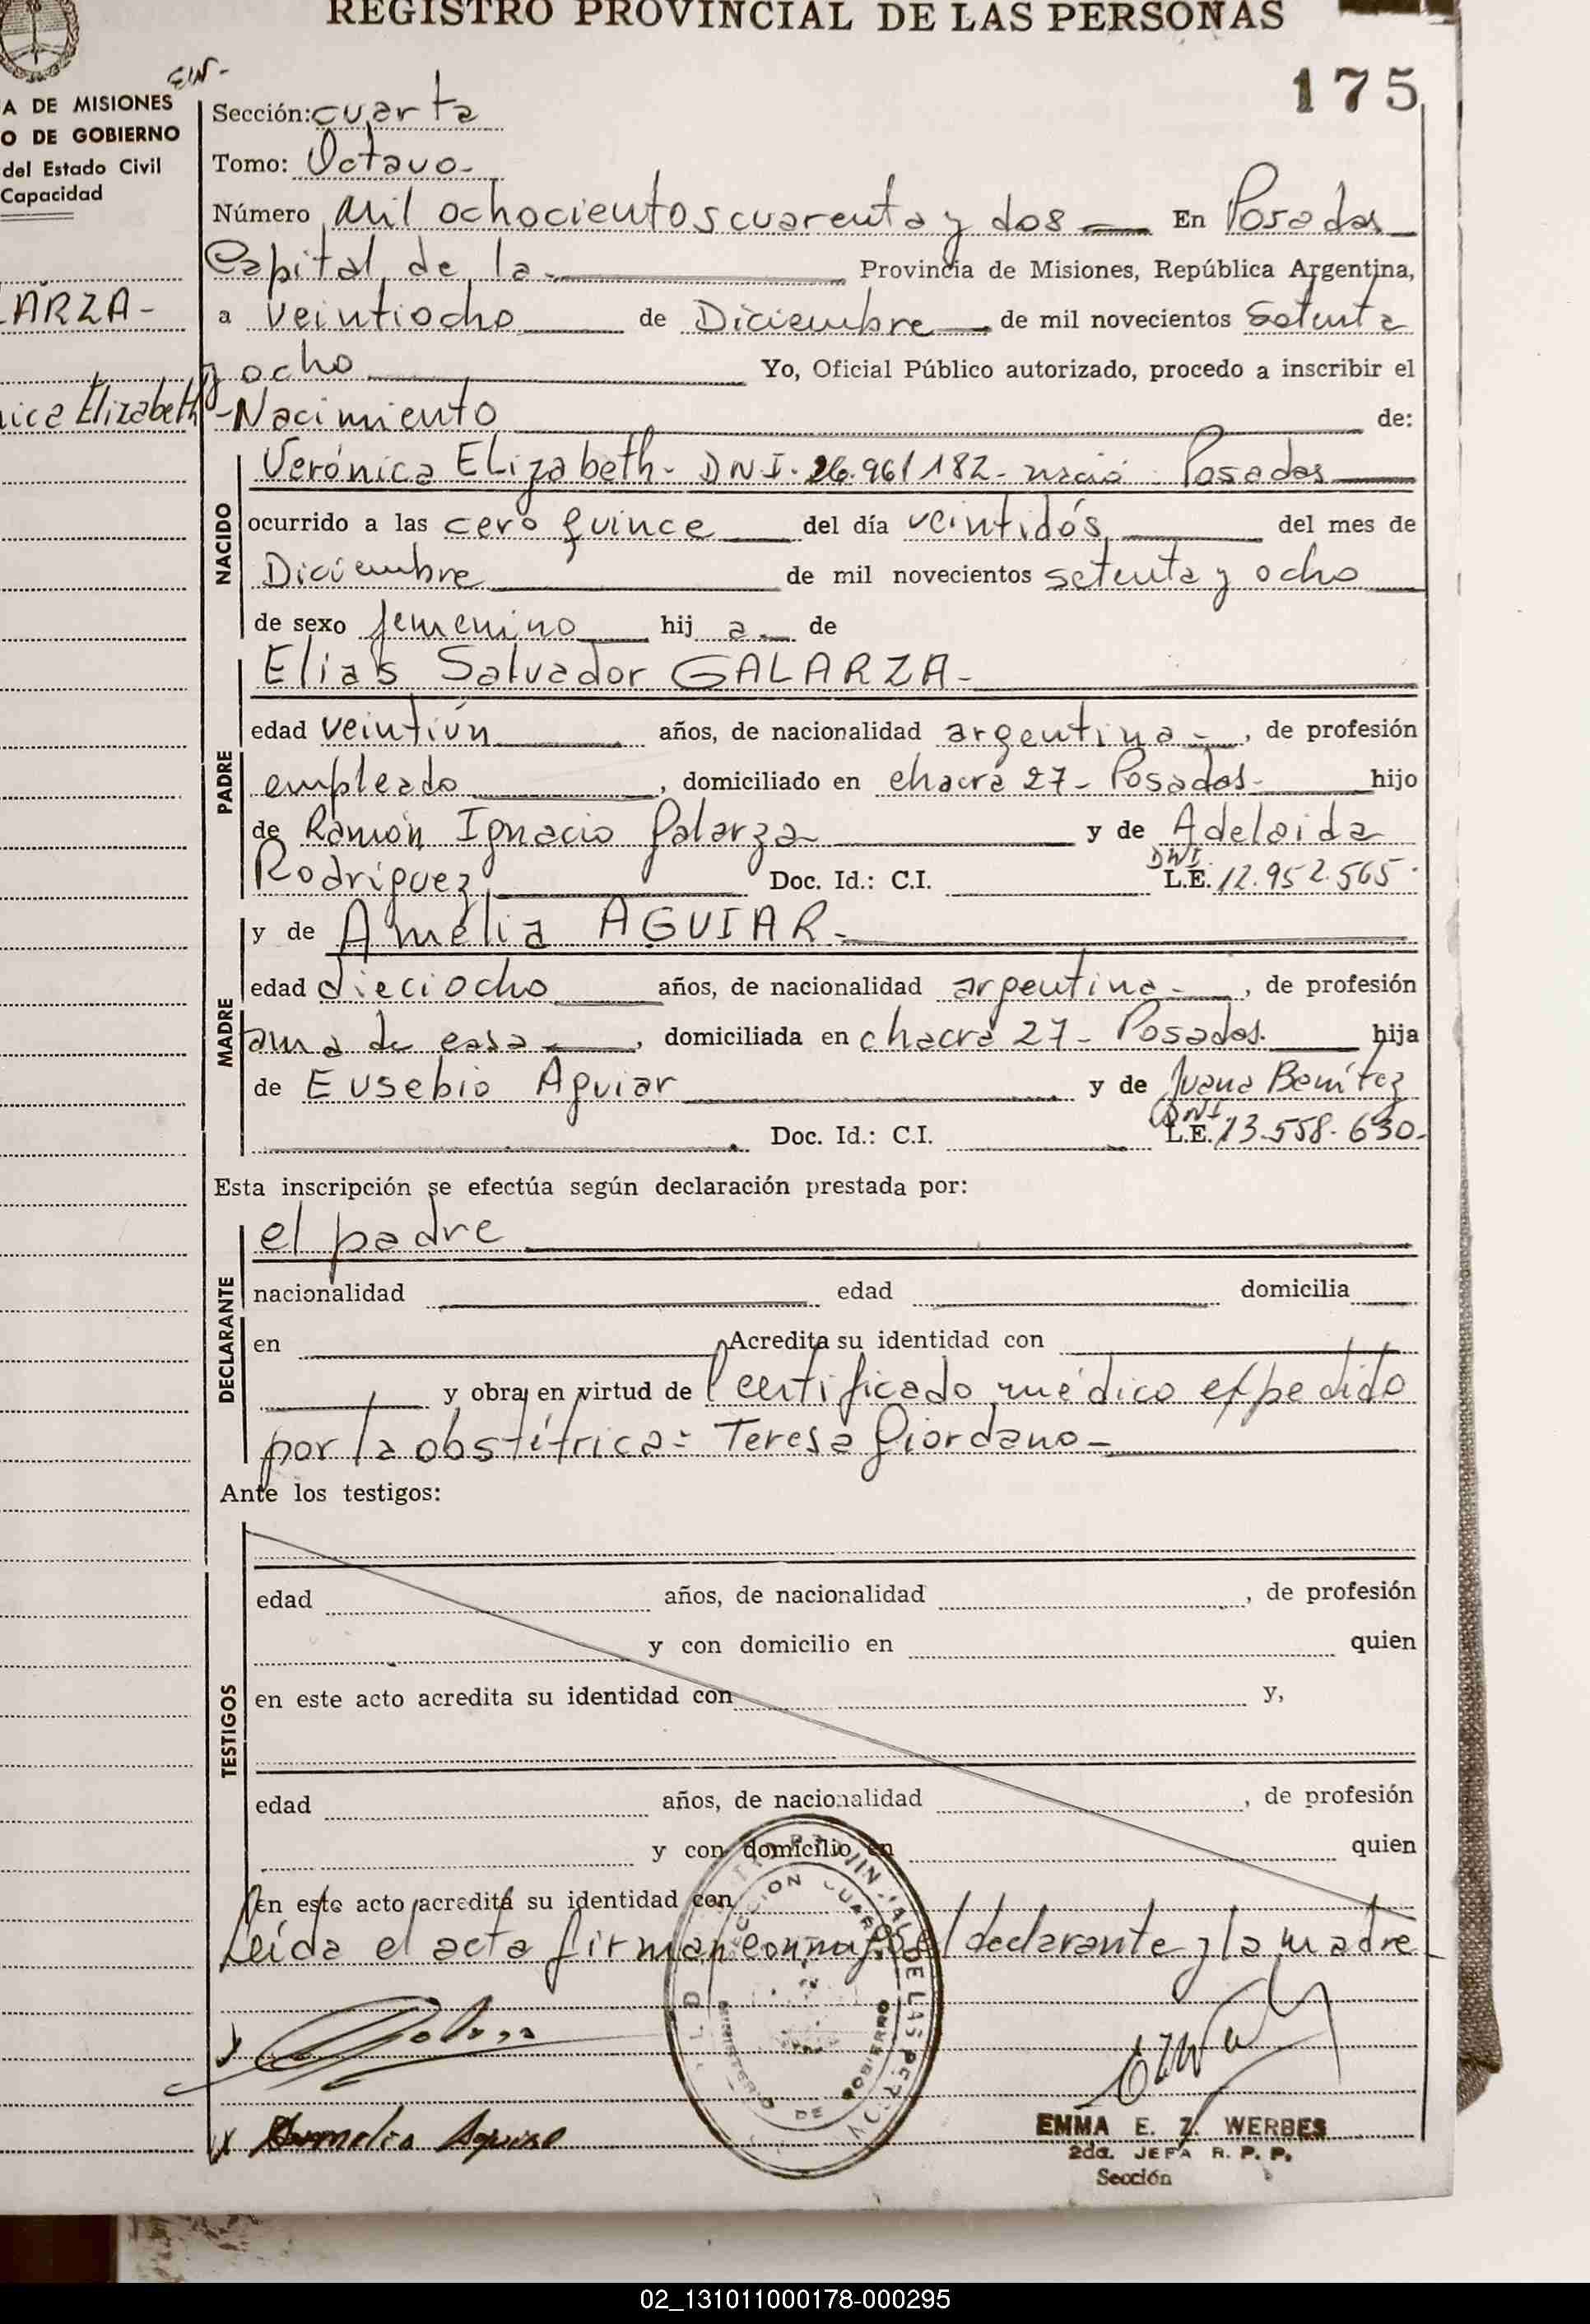 REGISTRO PROVINCIAL DE LAS PERSONAS
175
A DE MISIONES
O DE GOBIERNO
del Estado Civil
Capacidad
ARZA-
nica Elizabeth
Sección: cuarta
Tomo: Octavo-
Número Mil ochocientos cuarenta y dos En Posadas
Capital de la Provincia de Misiones, República Argentina,
a veintiocho de Diciembre de mil novecientos Setenta
y ocho Yo, Oficial Público autorizado, procedo a inscribir el
-Nacimiento de:
NACIDO
Verónica Elizabeth- DNI. 26.961182- nació Posadas
ocurrido a las cero quince del día veintidós del mes de
Diciembre de mil novecientos setenta y ocho
de sexo femenino hij a de
PADRE
Elias Salvador GALARZA-
edad veintiún años, de nacionalidad argentina-, de profesión
empleado, domiciliado en chacra 27- Posadas- hijo
de Ramón Ignacio Galarza y de Adelaida
Rodríguez Doc. Id.: C.I. DNI L.E. 12.952.565
MADRE
y de Amelia AGUIAR-
edad dieciocho años, de nacionalidad argentina-, de profesión
ama de casa, domiciliada en chacra 27- Posadas. hija
de Eusebio Aguiar y de Juana Benítez
Doc. Id.: C.I. DNI L.E. 13.558.630-
Esta inscripción se efectúa según declaración prestada por:
DECLARANTE
el padre
nacionalidad edad domicilia
en Acredita su identidad con
y obra en virtud de certificado médico expedido
por la obstétrica: Teresa Giordano-
Ante los testigos:
TESTIGOS
edad años, de nacionalidad , de profesión
y con domicilio en quien
en este acto acredita su identidad con y,
edad años, de nacionalidad , de profesión
y con domicilio en quien
en este acto acredita su identidad con
Leída el acta firman conmigo el declarante y la madre-
SECCION CUARTA
DE LAS PERSON
MINISTERIO DE GOBIERNO
EMMA E. Z. WERBES
2da. JEFA R. P. P.
Sección
02_131011000178-000295